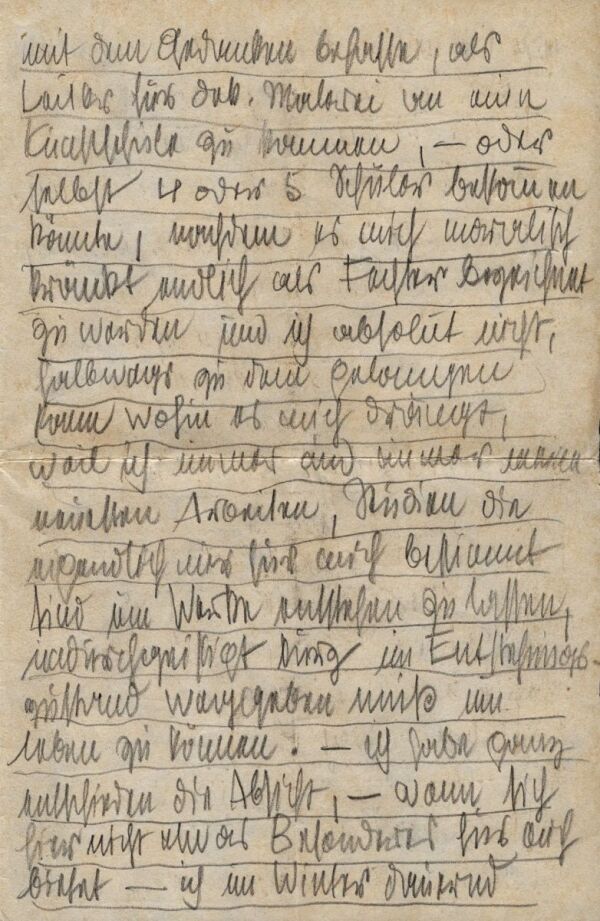 mit dem Gedanken befasse, als
Leiter für dek. Malerei an eine
Kunstschule zu kommen, — oder
selbst 4 oder 5 Schüler bekommen
könnte, nachdem es mich moralisch
kränkt endlich als Fechter bezeichnet
zu werden und ich absolut nicht,
halbwegs zu dem gelangen
kann wohin es mich drängt,
weil ich immer und immer meine
neuesten Arbeiten, Studien die
eigendlich nur für mich bestimmt
sind um Werke entstehen zu lassen,
undurchgeistigt kurz im Entstehungs-
zustand weggeben muß um
leben zu können. — ich habe ganz
entschieden die Absicht, — wenn sich
hier nicht etwas Besonderes für mich
bietet — ich im Winter dauernd